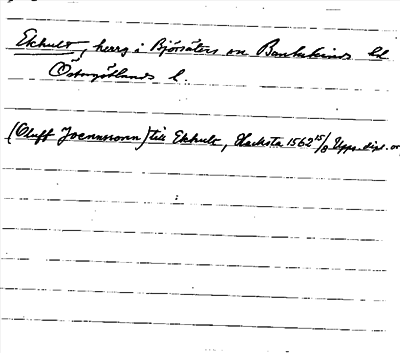 Ekhult, herrg i Björsäters sn Bankekinds hd
Östergötlands l.
(Oluff Joennsonn) till Ekhult, Hacksta 1562 15/8 Upps. dipl. or